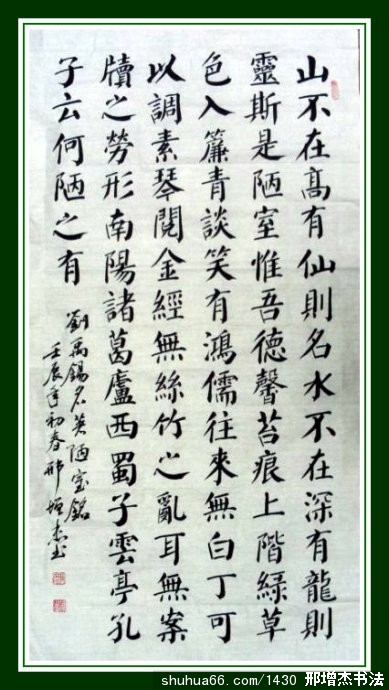 山不在髙有仙則名水不在深有龍則
靈斯是陋室惟吾德馨苔痕上階緑草
色入簾青談笑有鴻儒往來無白丁可
以調素琴閱金經無絲竹之亂耳無案
牘之勞形南陽諸葛廬西蜀子雲亭孔
子云何陋之有
劉禹錫名陋室銘
壬辰年初春邢增杰书
shuhua66.com/1430 邢增杰书法